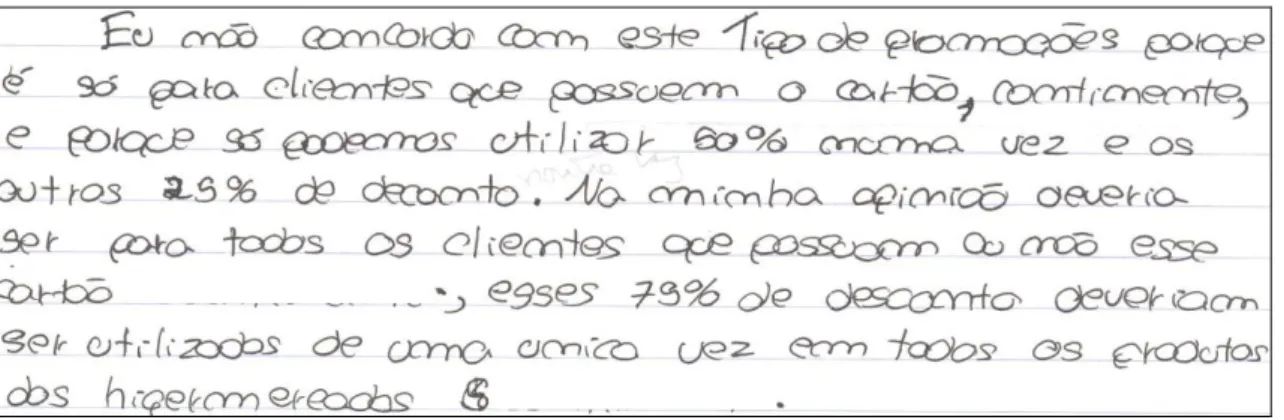 Eu não concordo com este Tipo de promoções porque
é só para clientes que possuem o cartão, continente,
e porque só podemos utilizar 50% numa vez e os
outros 25% de deconto. Na minha opinião deveria
ser para todos os clientes que possuam ou não esse
cartão , esses 75% de desconto deveriam
ser utilizados de uma unica vez em todos os produtos
dos hipermercados .